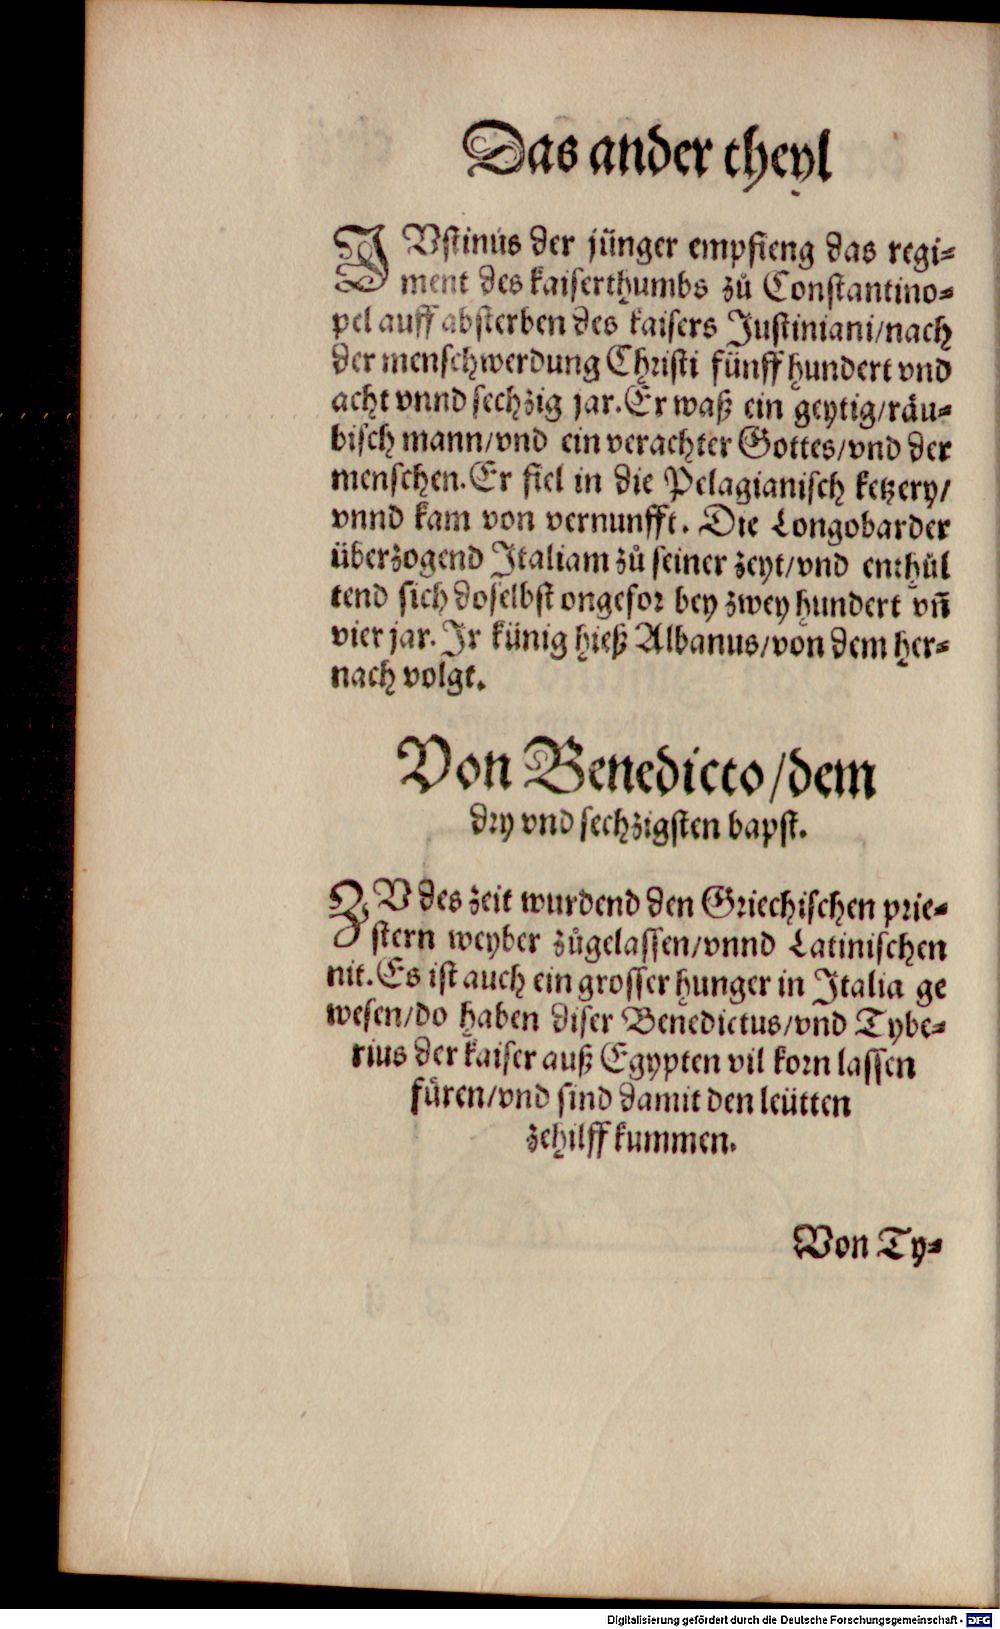 Das ander theyl
JVstinus der jünger empfieng das regi⸗
ment des kaiserthumbs zů Constantino⸗
pel auff absterben des kaisers Justiniani/nach
der menschwerdung Christi fünff hundert vnd
acht vnnd sechzig jar. Er waß ein geytig/räu⸗
bisch mann/vnd ein verachter Gottes/vnd der
menschen. Er fiel in die Pelagianisch ketzery/
vnnd kam von vernunfft. Die Longobarder
überzogend Italiam zů seiner zeyt/vnd enthül
tend sich doselbst ongefor bey zwey hundert vñ
vier jar. Jr künig hieß Albanus/von dem her⸗
nach volgt.
Von Benedicto/dem
dry vnd sechzigsten bapst.
ZV des zeit wurdend den Griechischen prie⸗
stern weyber zůgelassen/vnnd Latinischen
nit. Es ist auch ein grosser hunger in Italia ge
wesen/do haben diser Benedictus/vnd Tybe⸗
rius der kaiser auß Egypten vil korn lassen
fůren/vnd sind damit den leütten
zehilff kummen.
Von Ty⸗
Digitalisierung gefördert durch die Deutsche Forschungsgemeinschaft - DFG